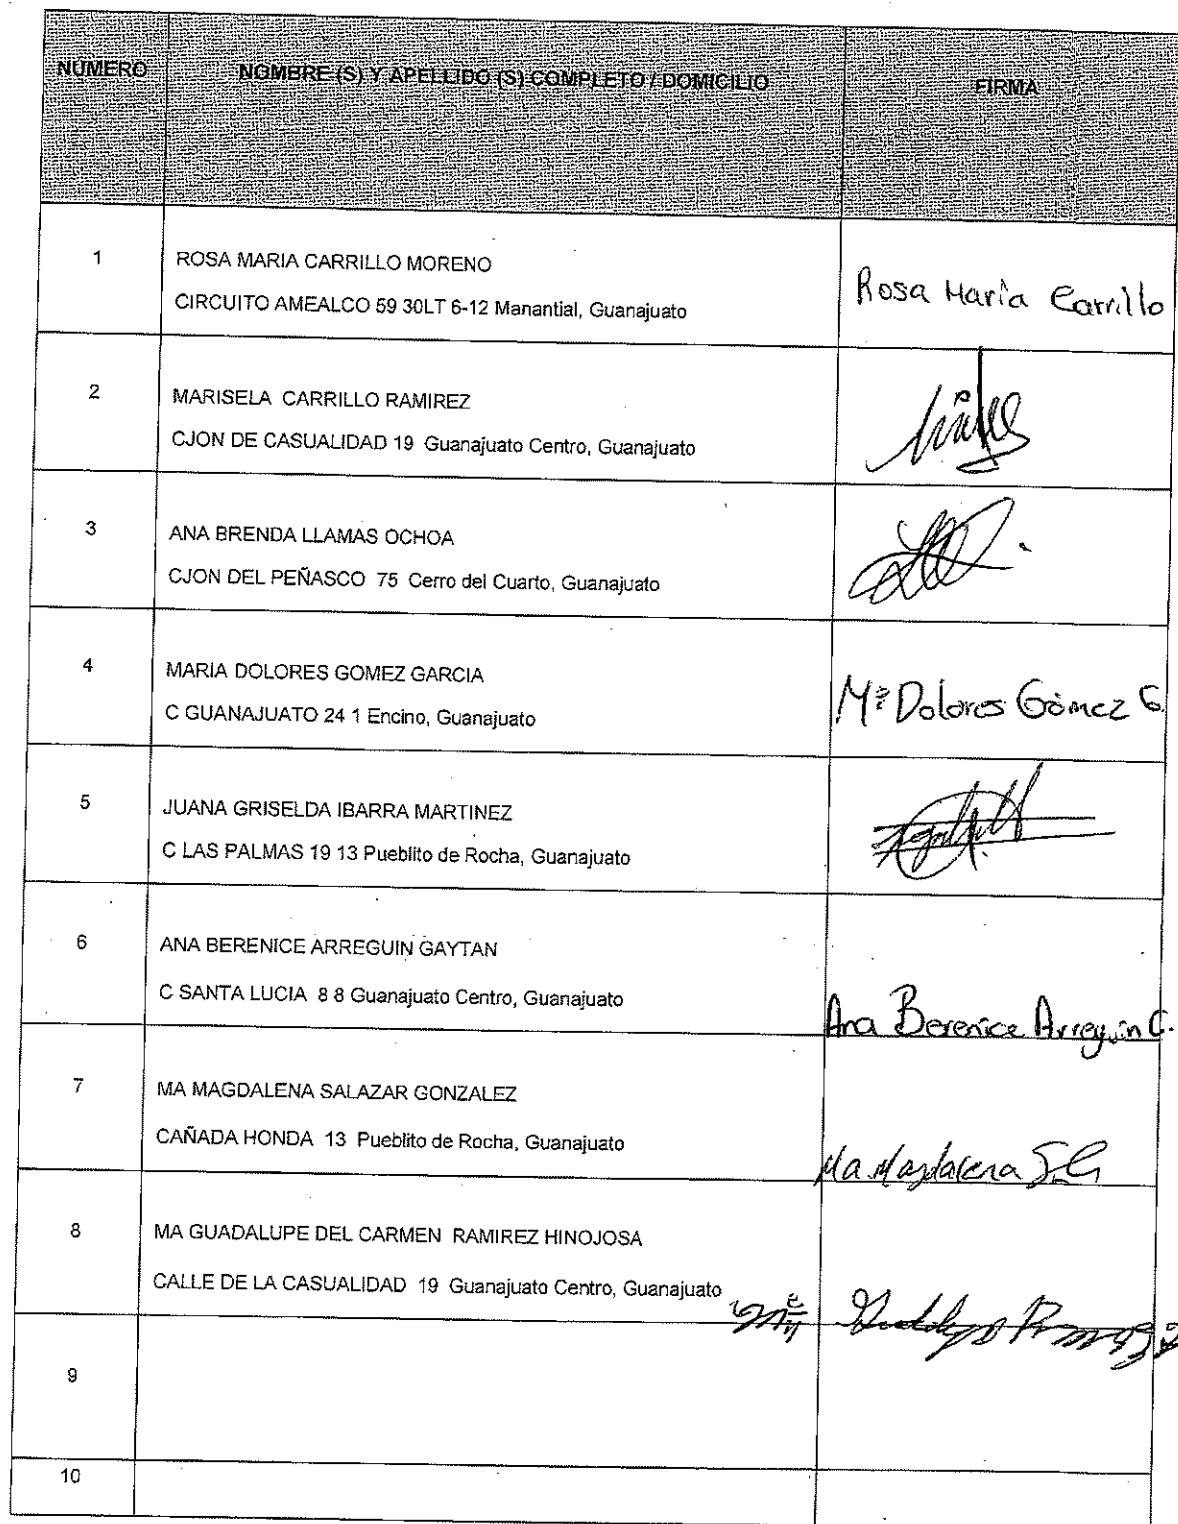 NÚMERO
NOMBRE (S) Y APELLIDO (S) COMPLETO / DOMICILIO
FIRMA
1
ROSA MARIA CARRILLO MORENO
CIRCUITO AMEALCO 59 30LT 6-12 Manantial, Guanajuato
Rosa María Carrillo
2
MARISELA CARRILLO RAMIREZ
CJON DE CASUALIDAD 19 Guanajuato Centro, Guanajuato
3
ANA BRENDA LLAMAS OCHOA
CJON DEL PEÑASCO 75 Cerro del Cuarto, Guanajuato
4
MARIA DOLORES GOMEZ GARCIA
C GUANAJUATO 24 1 Encino, Guanajuato
Mª Dolores Gómez G.
5
JUANA GRISELDA IBARRA MARTINEZ
C LAS PALMAS 19 13 Pueblito de Rocha, Guanajuato
6
ANA BERENICE ARREGUIN GAYTAN
C SANTA LUCIA 8 8 Guanajuato Centro, Guanajuato
Ana Berenice Arreguin G.
7
MA MAGDALENA SALAZAR GONZALEZ
CAÑADA HONDA 13 Pueblito de Rocha, Guanajuato
Ma. Magdalena S.G
8
MA GUADALUPE DEL CARMEN RAMIREZ HINOJOSA
CALLE DE LA CASUALIDAD 19 Guanajuato Centro, Guanajuato
9
10